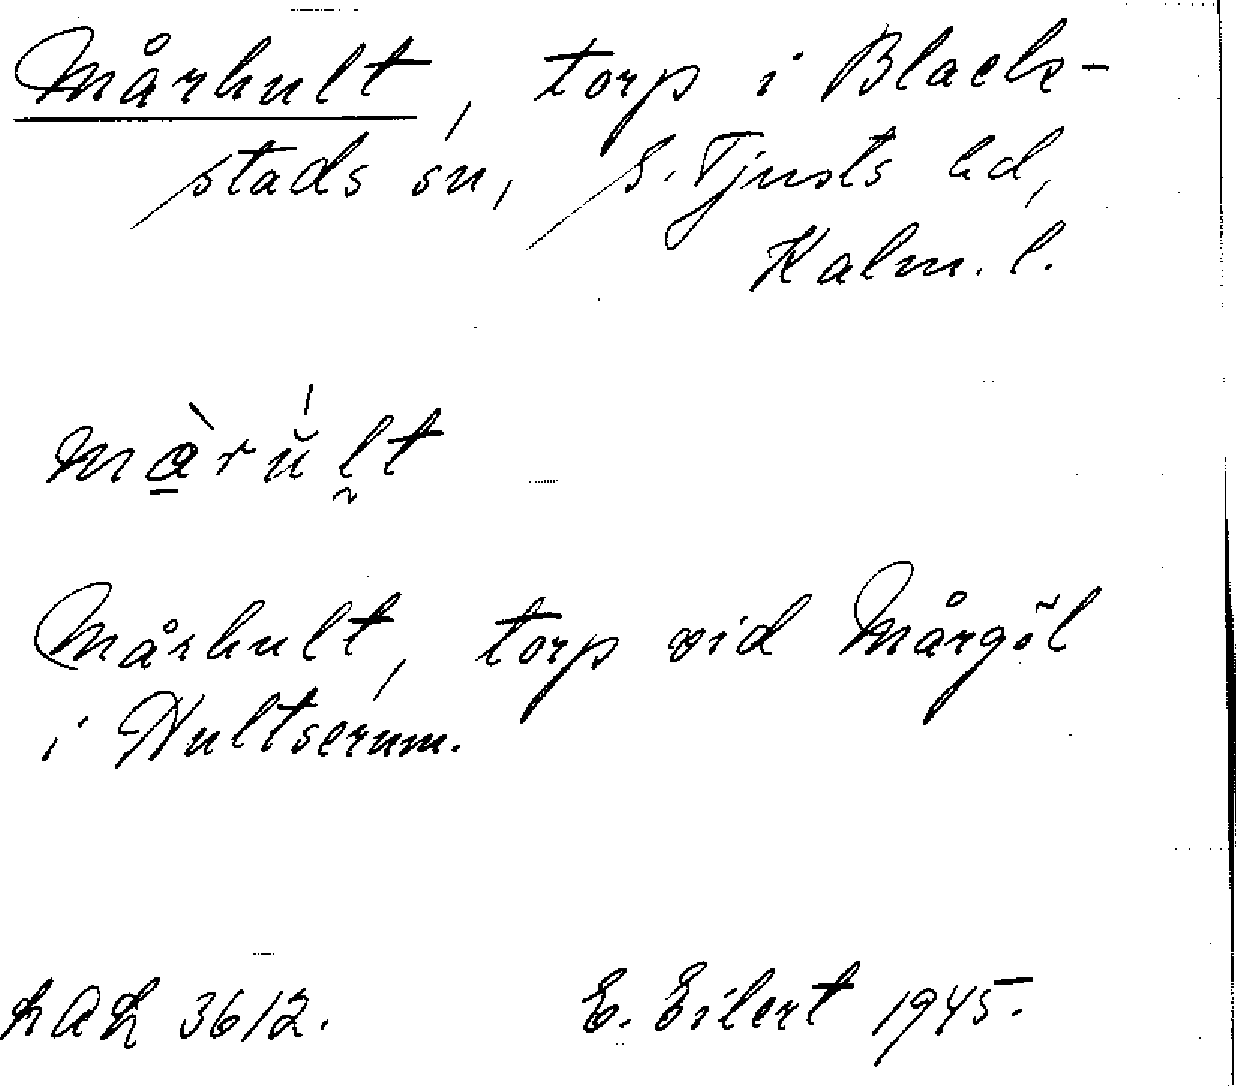 Mårhult, torp i Black-
stads sn, S. Tjusts hd,
Kalm. l.
må̀rŭ́lt
Mårhult, torp vid Mårgöl
i Hultserum.
LAL 3612. E. Eilert 1945.